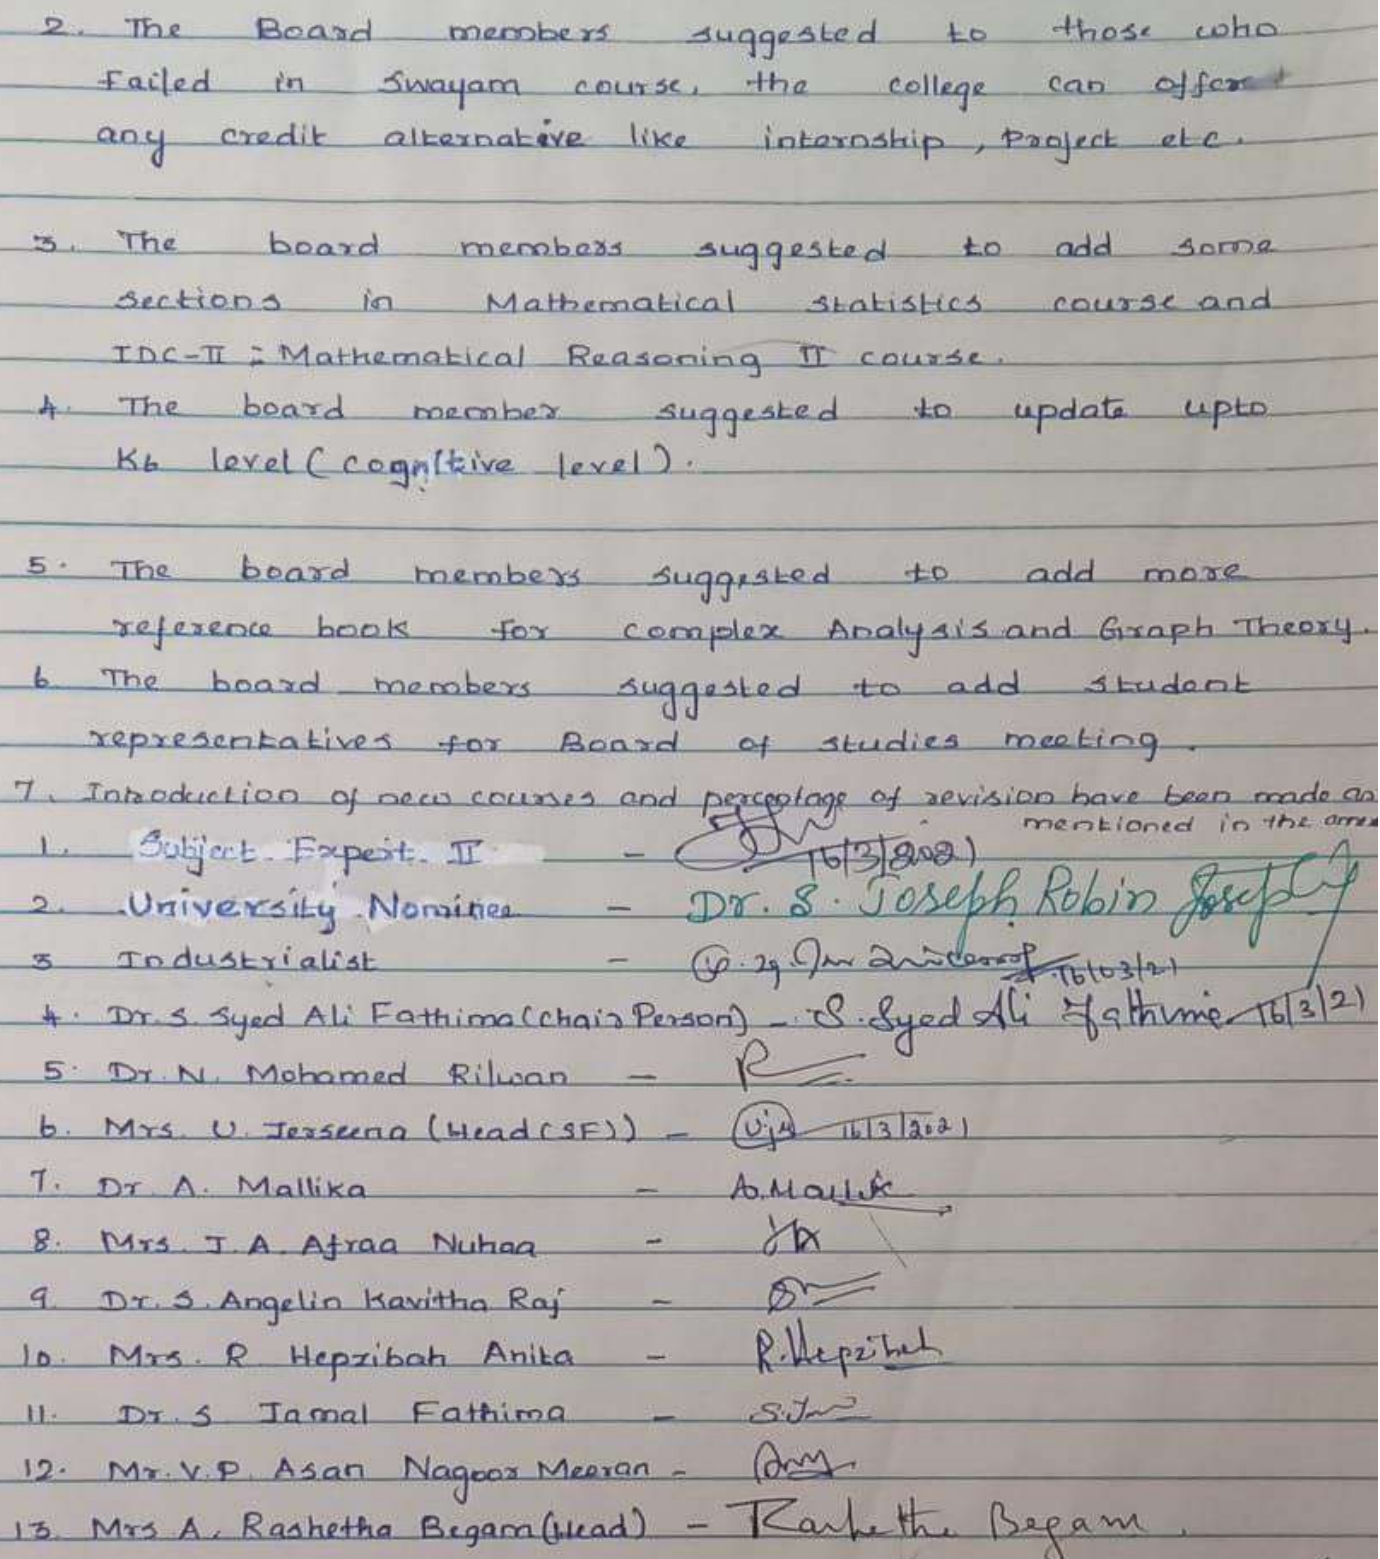 2. The Board members suggested to those who
Failed in Swayam course, the college can offer
any credit alternative like internship, Project etc.
3. The board members suggested to add some
sections in Mathematical statistics course and
IDC-II : Mathematical Reasoning II course.
4. The board member suggested to update upto
K6 level (cognitive level).
5. The board members suggested to add more
reference book for complex Analysis and Graph Theory.
6 The board members suggested to add student
representatives for Board of studies meeting.
7. Introduction of new courses and percentage of revision have been made as
mentioned in the
1. Subject Expert II - 16/3/2021
2. University Nominee - Dr. S. Joseph Robin Joseph
3 Industrialist - 16/03/21
4. Dr. S. Syed Ali Fathima (Chair Person) - S. Syed Ali Fathima 16/3/21
5. Dr. N. Mohamed Rilwan -
6. Mrs. U. Jerseena (Head (SF)) - 16/3/2021
7. Dr A. Mallika - A. Mallika
8. Mrs. J. A. Afraa Nuhaa -
9. Dr. S. Angelin Kavitha Raj -
10. Mrs. R Hepzibah Anita - R. Hepzibah
11. Dr. S Jamal Fathima -
12. Mr. V. P. Asan Nagoor Meeran -
13. Mrs A. Rashetha Begam (Head) - Rashetha Begam.